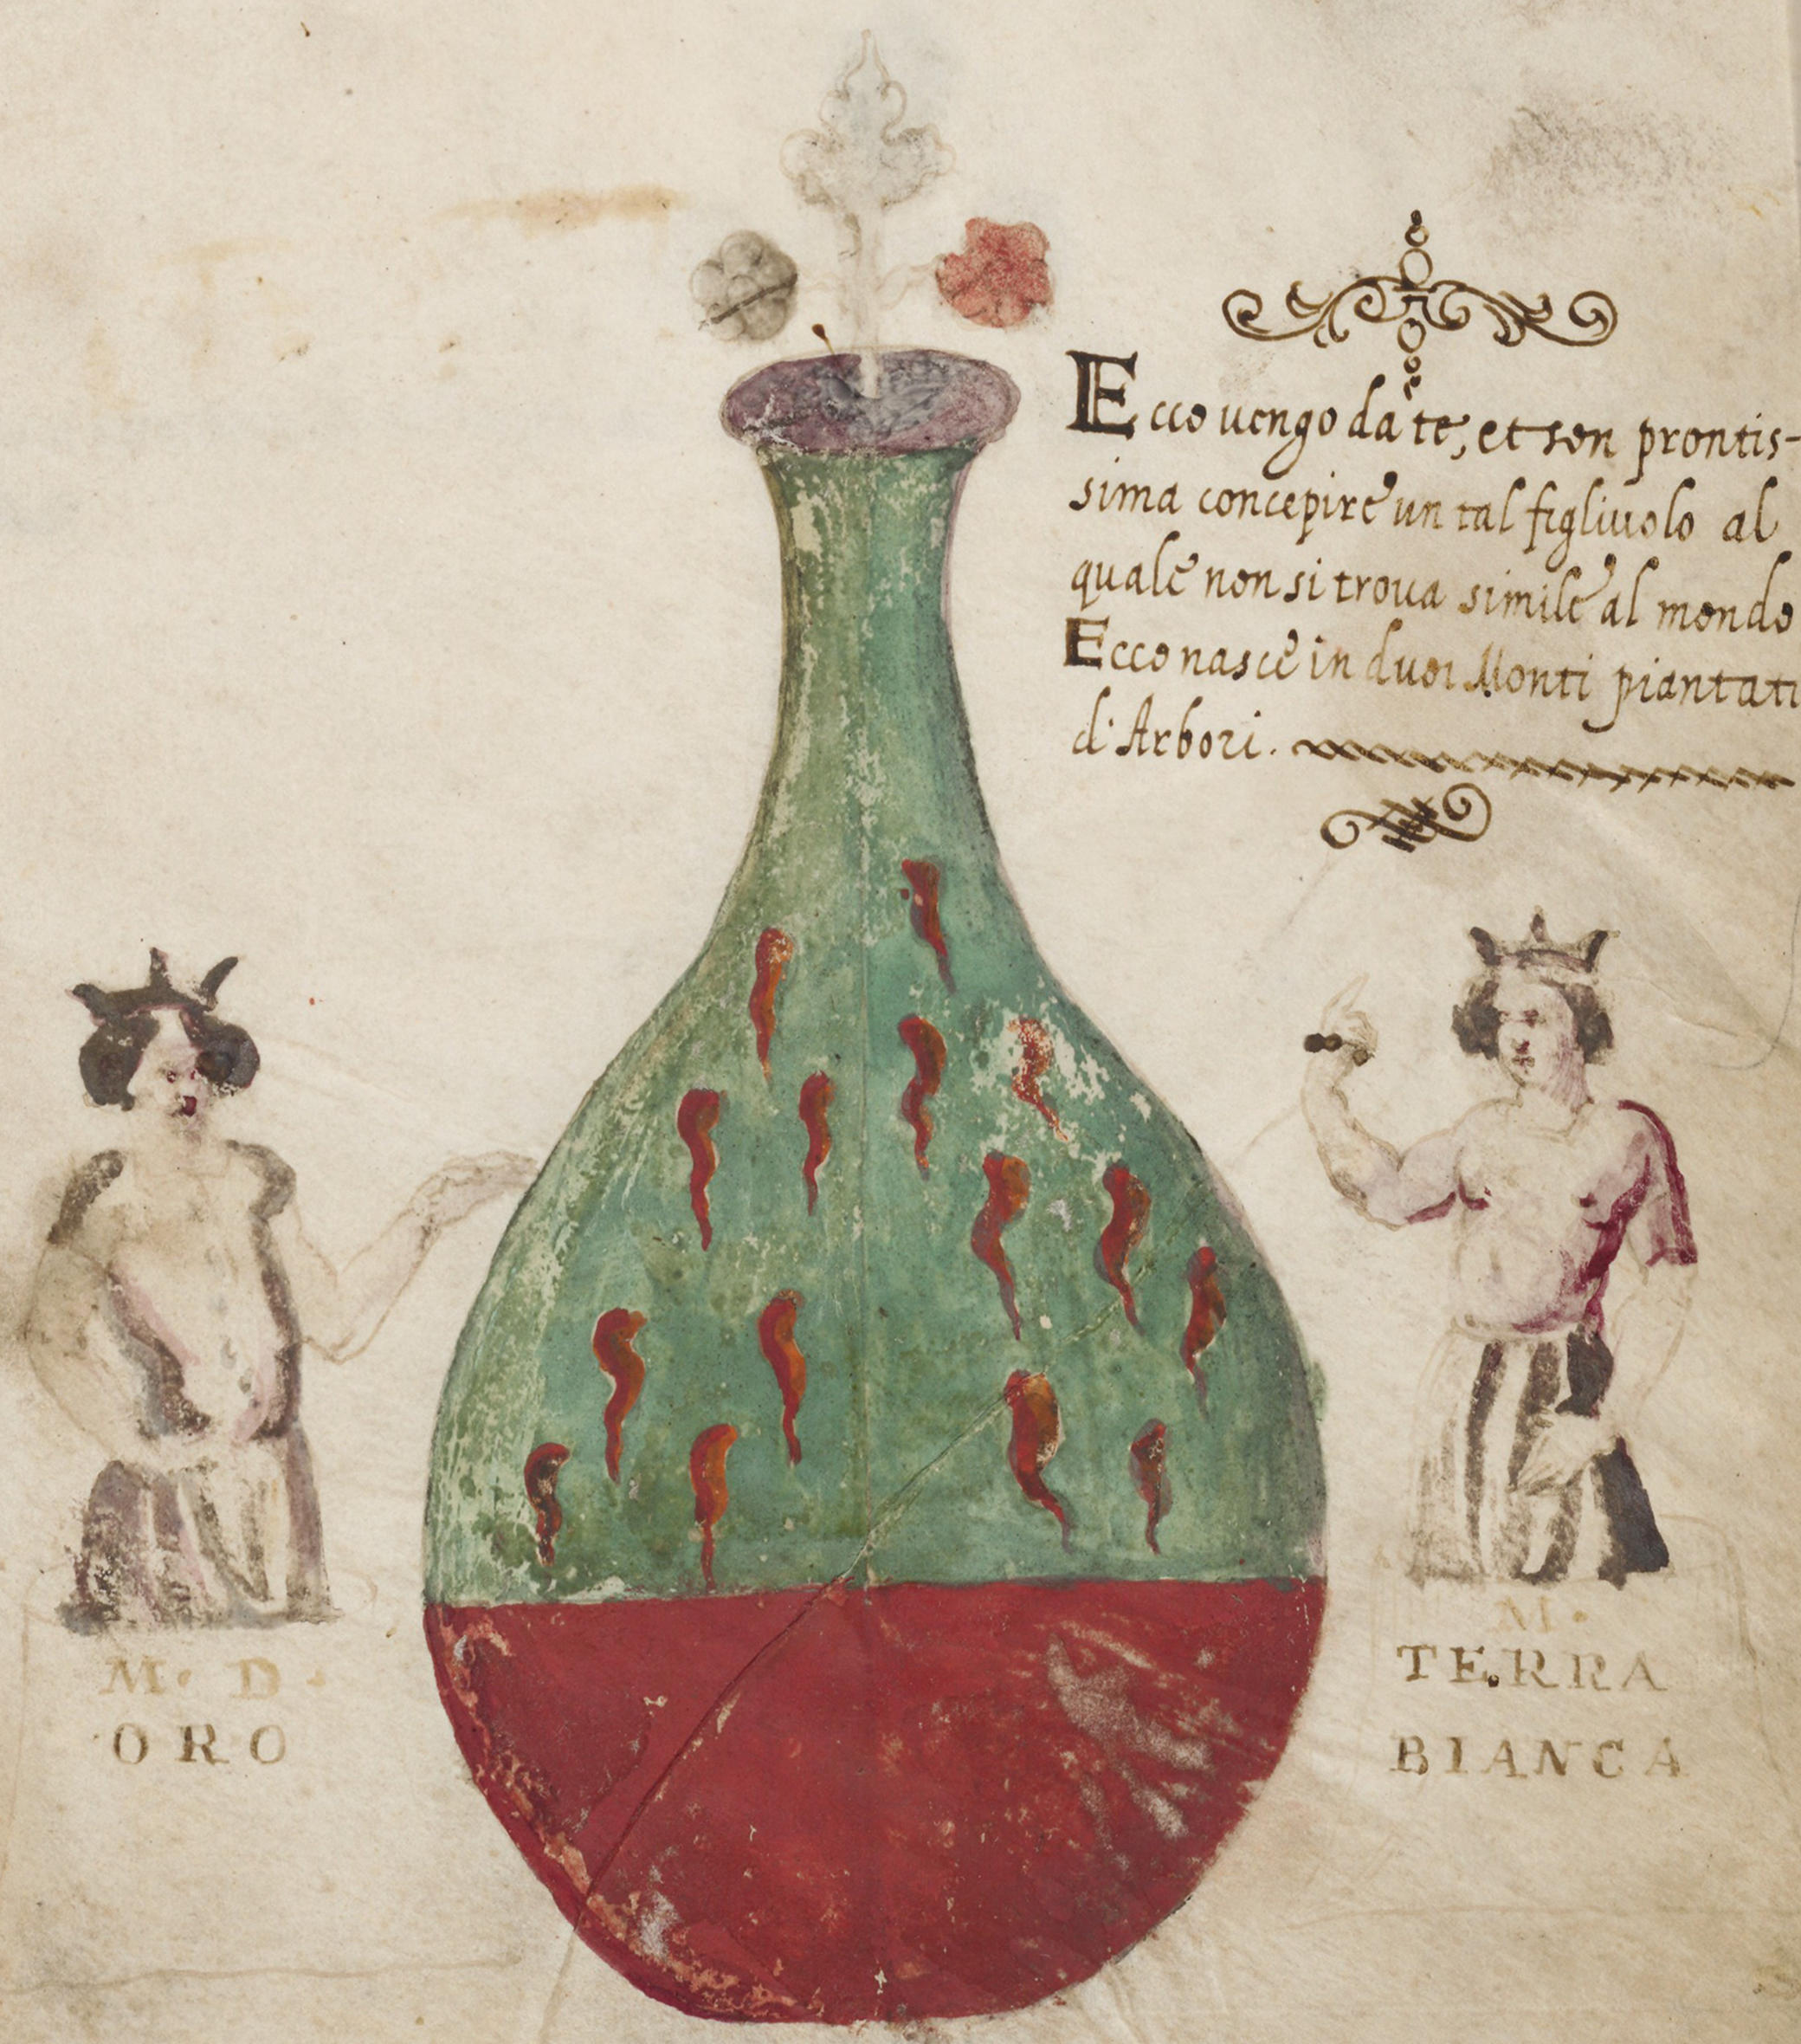 Ecco uengo da te, et son prontis-
sima concepire un tal figliuolo al
quale non si troua simile al mondo
Ecco nasce in duoi Monti piantati
d'Arbori.
M. D.
ORO
M.
TERRA
BIANCA